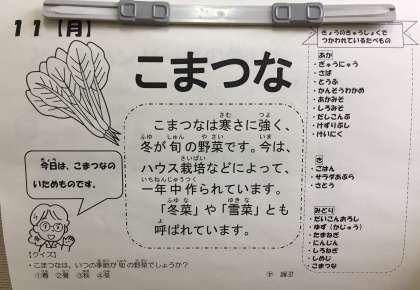 11【月】
こまつな
こまつなは寒さに強く、
冬が旬の野菜です。今は、
ハウス栽培などによって、
一年中作られています。
「冬菜」や「雪菜」とも
呼ばれています。
今日は、こまつなの
いためものです。
【クイズ】
・こまつなは、いつの季節が旬の野菜でしょうか？
①春 ②夏 ③秋 ④冬
きょうのきゅうしょくで
つかわれているたべもの
あか
・ぎゅうにゅう
・さば
・とうふ
・かんそうわかめ
・あかみそ
・しろみそ
・だしこんぶ
・けずりぶし
・けいにく
き
・ごはん
・サラダあぶら
・さとう
みどり
・だいこんおろし
・ゆず（かじゅう）
・たまねぎ
・にんじん
・しろねぎ
・しめじ
・こまつな